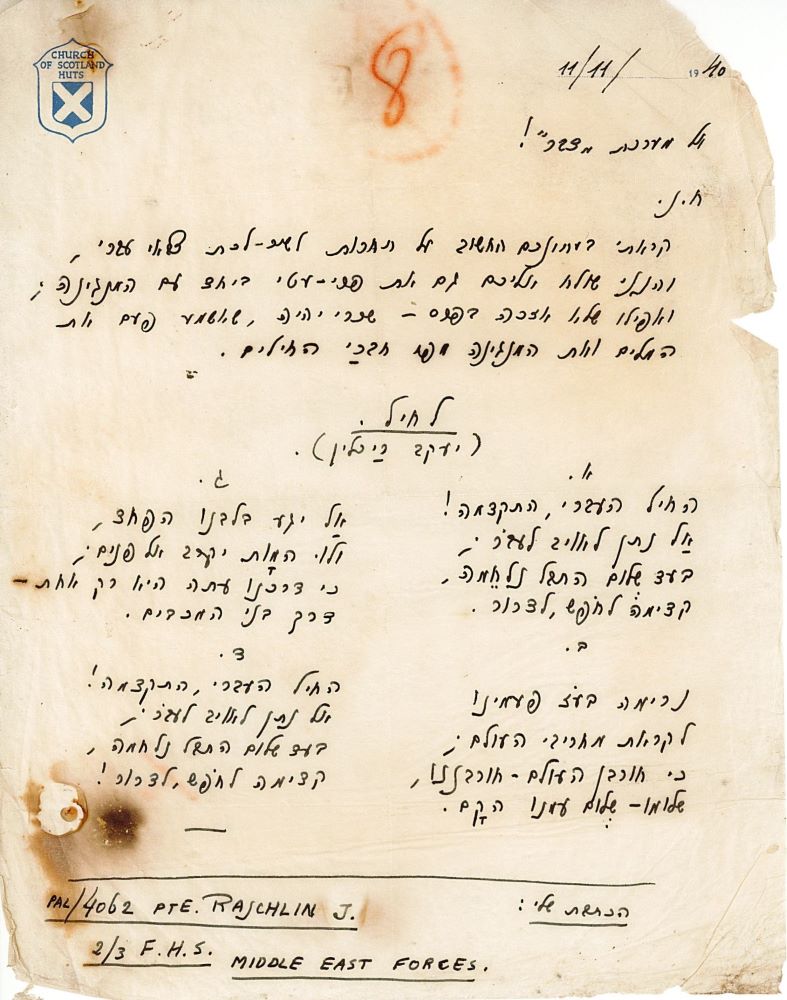 CHURCH
OF SCOTLAND
HUTS
8
11/11/ 1940
אל מערכת מצבר"!
ח.נ.
קראתי בעתונכם החשוב על תחרות לשיר-לכת צבאי עברי,
והנני שולח אליכם גם את פרי-עטי ביחד עם המנגינה;
ואפילו שלא אזכה בפרס – שכרי יהיה, שאשמע פעם את
המלים ואת המנגינה מפי חברַי החילים.
לחיל.
(יעקב רַיכלין).
א.
החיל העברי, התקדמה!
אַל נתן לאויב לעבֹר;
בעד שלום התבל נלָחֵמה,
קדימה לחֹפש, לדרור.
ב.
נרימה בעֹז פעמינו
לקראת מחריבי העולם;
כי חורבן העולם – חורבננו,
שלומו – שלום עמנו הקָם.
ג.
אַל יגע בלבנו הפחד,
ולוּ המָות יקרב אל פנים;
כי דרכֵנוּ עתה היא רק אחת –
דרך בני המכבים.
ד.
החיל העברי, התקדמה!
אל נתן לאויב לעבֹר;
בעד שלום התבל נלחמה,
קדימה לחֹפש, לדרור!
הכתבת שלי:
PAL/4062 PTE. RAJCHLIN J.
2/3 F.H.S. MIDDLE EAST FORCES.